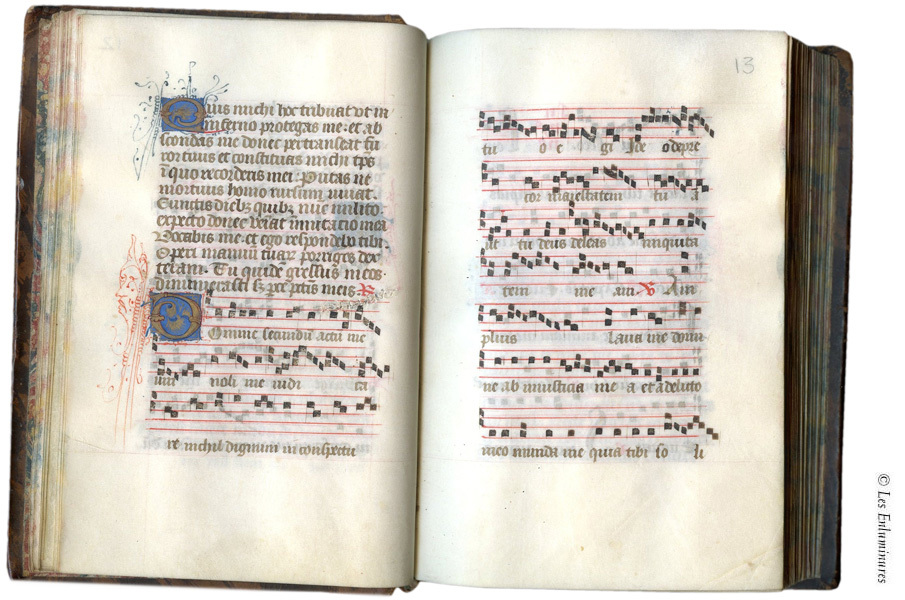 Quis michi hoc tribuat ut in
inferno protegas me: et ab
scondas me donec pertranseat fu
ror tuus et constituas michi tps
i quo recorderis mei: Putas ne
mortuus homo rursum vivat.
Cunctis dieb quib nuc milito.
expecto donec veiat imutatio mea
Vocabis me: et ego respondebo tibi.
Operi manuu tuar porriges dex
teram. Tu quide gressus meos
dinumerasti s; pce pctis meis. R
Domine secundu actu me
um noli me iudi ca
re nichil dignum in conspectu
13
tu o e gi Ide o depre
cor maiestatem tu a
ut tu deus deleas iniquita
tem me am V Am
plius laua me domi
ne ab iniusticia me a et a delicto
meo munda me quia tibi so li
© Les Enluminures